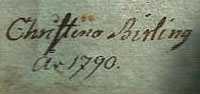 Christina Birling
År 1790.